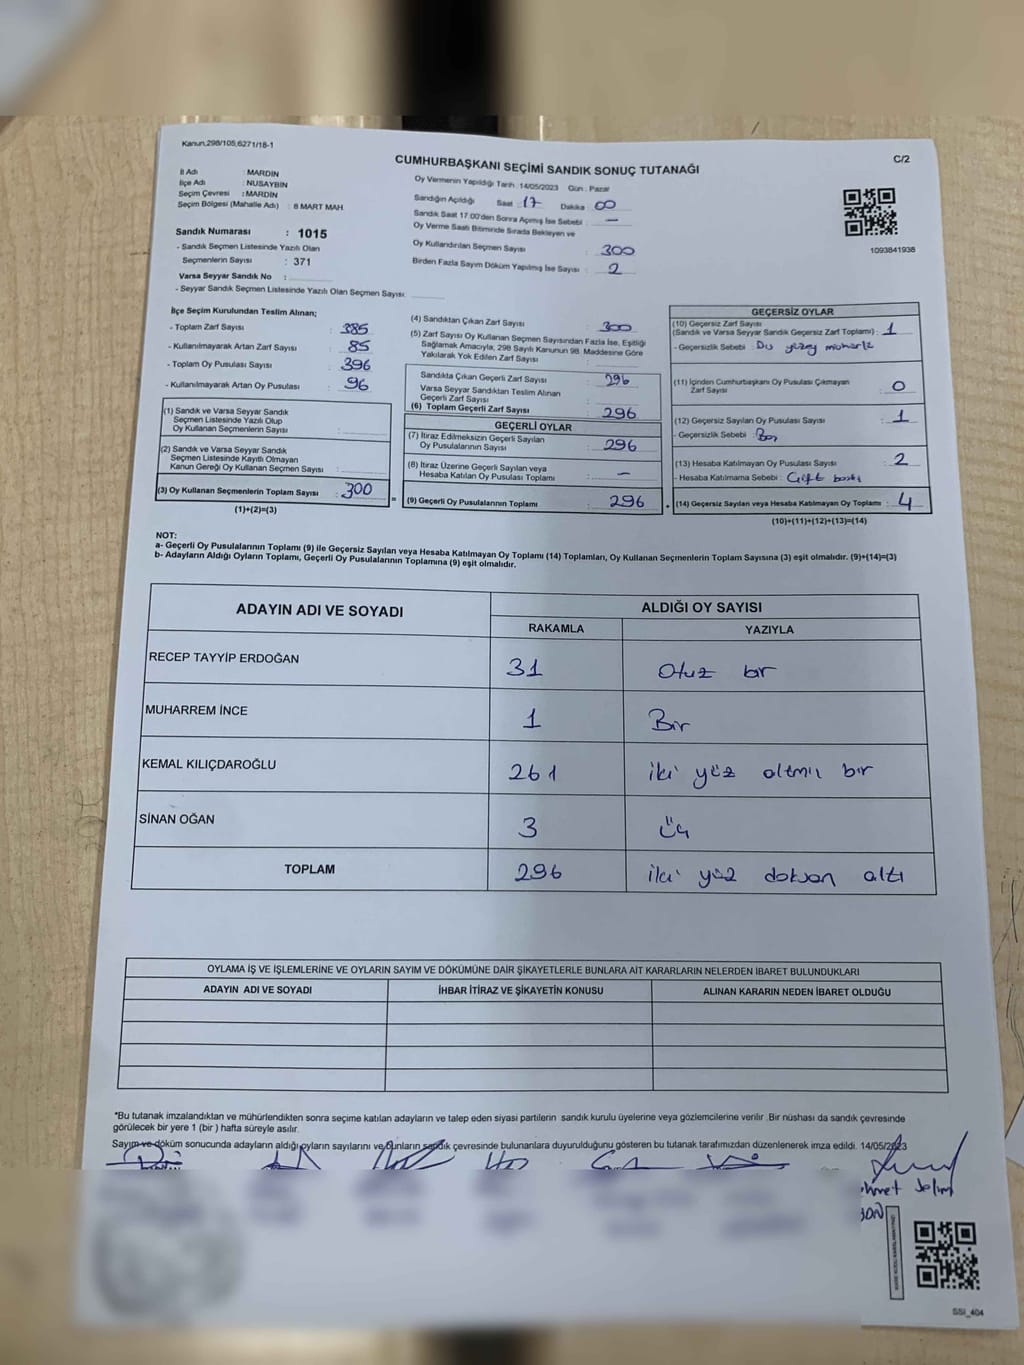 Kanun,298/105,6271/18-1
C/2
CUMHURBAŞKANI SEÇİMİ SANDIK SONUÇ TUTANAĞI
İl Adı : MARDİN
İlçe Adı : NUSAYBİN
Seçim Çevresi : MARDİN
Seçim Bölgesi (Mahalle Adı) : 8 MART MAH.
Sandık Numarası : 1015
- Sandık Seçmen Listesinde Yazılı Olan
Seçmenlerin Sayısı : 371
Varsa Seyyar Sandık No :
- Seyyar Sandık Seçmen Listesinde Yazılı Olan Seçmen Sayısı:
Oy Vermenin Yapıldığı Tarih :14/05/2023 Gün : Pazar
Sandığın Açıldığı Saat :17 Dakika 00
Sandık Saat 17.00'den Sonra Açılmış İse Sebebi : —
Oy Verme Saati Bitiminde Sırada Bekleyen ve
Oy Kullandırılan Seçmen Sayısı : 300
Birden Fazla Sayım Döküm Yapılmış İse Sayısı : 2
1093841938
İlçe Seçim Kurulundan Teslim Alınan;
- Toplam Zarf Sayısı : 385
- Kullanılmayarak Artan Zarf Sayısı : 85
- Toplam Oy Pusulası Sayısı : 396
- Kullanılmayarak Artan Oy Pusulası : 96
(1) Sandık ve Varsa Seyyar Sandık
Seçmen Listesinde Yazılı Olup
Oy Kullanan Seçmenlerin Sayısı :
(2) Sandık ve Varsa Seyyar Sandık
Seçmen Listesinde Kayıtlı Olmayan
Kanun Gereği Oy Kullanan Seçmen Sayısı :
(3) Oy Kullanan Seçmenlerin Toplam Sayısı : 300
(1)+(2)=(3)
=
(4) Sandıktan Çıkan Zarf Sayısı : 300
(5) Zarf Sayısı Oy Kullanan Seçmen Sayısından Fazla İse, Eşitliği
Sağlamak Amacıyla, 298 Sayılı Kanunun 98. Maddesine Göre
Yakılarak Yok Edilen Zarf Sayısı :
Sandıkta Çıkan Geçerli Zarf Sayısı : 296
Varsa Seyyar Sandıktan Teslim Alınan
Geçerli Zarf Sayısı :
(6) Toplam Geçerli Zarf Sayısı : 296
GEÇERLİ OYLAR
(7) İtiraz Edilmeksizin Geçerli Sayılan
Oy Pusulalarının Sayısı : 296
(8) İtiraz Üzerine Geçerli Sayılan veya
Hesaba Katılan Oy Pusulası Toplamı : —
(9) Geçerli Oy Pusulalarının Toplamı : 296
+
GEÇERSİZ OYLAR
(10) Geçersiz Zarf Sayısı
(Sandık ve Varsa Seyyar Sandık Geçersiz Zarf Toplamı) : 1
- Geçersizlik Sebebi : Dış yüzey
(11) İçinden Cumhurbaşkanı Oy Pusulası Çıkmayan
Zarf Sayısı : 0
(12) Geçersiz Sayılan Oy Pusulası Sayısı : 1
- Geçersizlik Sebebi : Boş
(13) Hesaba Katılmayan Oy Pusulası Sayısı : 2
- Hesaba Katılmama Sebebi : Çift baskı
(14) Geçersiz Sayılan veya Hesaba Katılmayan Oy Toplamı : 4
(10)+(11)+(12)+(13)=(14)
NOT:
a- Geçerli Oy Pusulalarının Toplamı (9) ile Geçersiz Sayılan veya Hesaba Katılmayan Oy Toplamı (14) Toplamları, Oy Kullanan Seçmenlerin Toplam Sayısına (3) eşit olmalıdır. (9)+(14)=(3)
b- Adayların Aldığı Oyların Toplamı, Geçerli Oy Pusulalarının Toplamına (9) eşit olmalıdır.
ADAYIN ADI VE SOYADI
ALDIĞI OY SAYISI
RAKAMLA YAZIYLA
RECEP TAYYİP ERDOĞAN 31 Otuz bir
MUHARREM İNCE 1 Bir
KEMAL KILIÇDAROĞLU 261 iki yüz altmış bir
SİNAN OĞAN 3 üç
TOPLAM 296 iki yüz doksan altı
OYLAMA İŞ VE İŞLEMLERİNE VE OYLARIN SAYIM VE DÖKÜMÜNE DAİR ŞİKAYETLERLE BUNLARA AİT KARARLARIN NELERDEN İBARET BULUNDUKLARI
ADAYIN ADI VE SOYADI İHBAR İTİRAZ VE ŞİKAYETİN KONUSU ALINAN KARARIN NEDEN İBARET OLDUĞU
*Bu tutanak imzalandıktan ve mühürlendikten sonra seçime katılan adayların ve talep eden siyasi partilerin sandık kurulu üyelerine veya gözlemcilerine verilir .Bir nüshası da sandık çevresinde
görülecek bir yere 1 (bir ) hafta süreyle asılır.
Sayım ve döküm sonucunda adayların aldığı oyların sayılarını ve bunların sandık çevresinde bulunanlara duyurulduğunu gösteren bu tutanak tarafımızdan düzenlenerek imza edildi. 14/05/2023
SSI_404